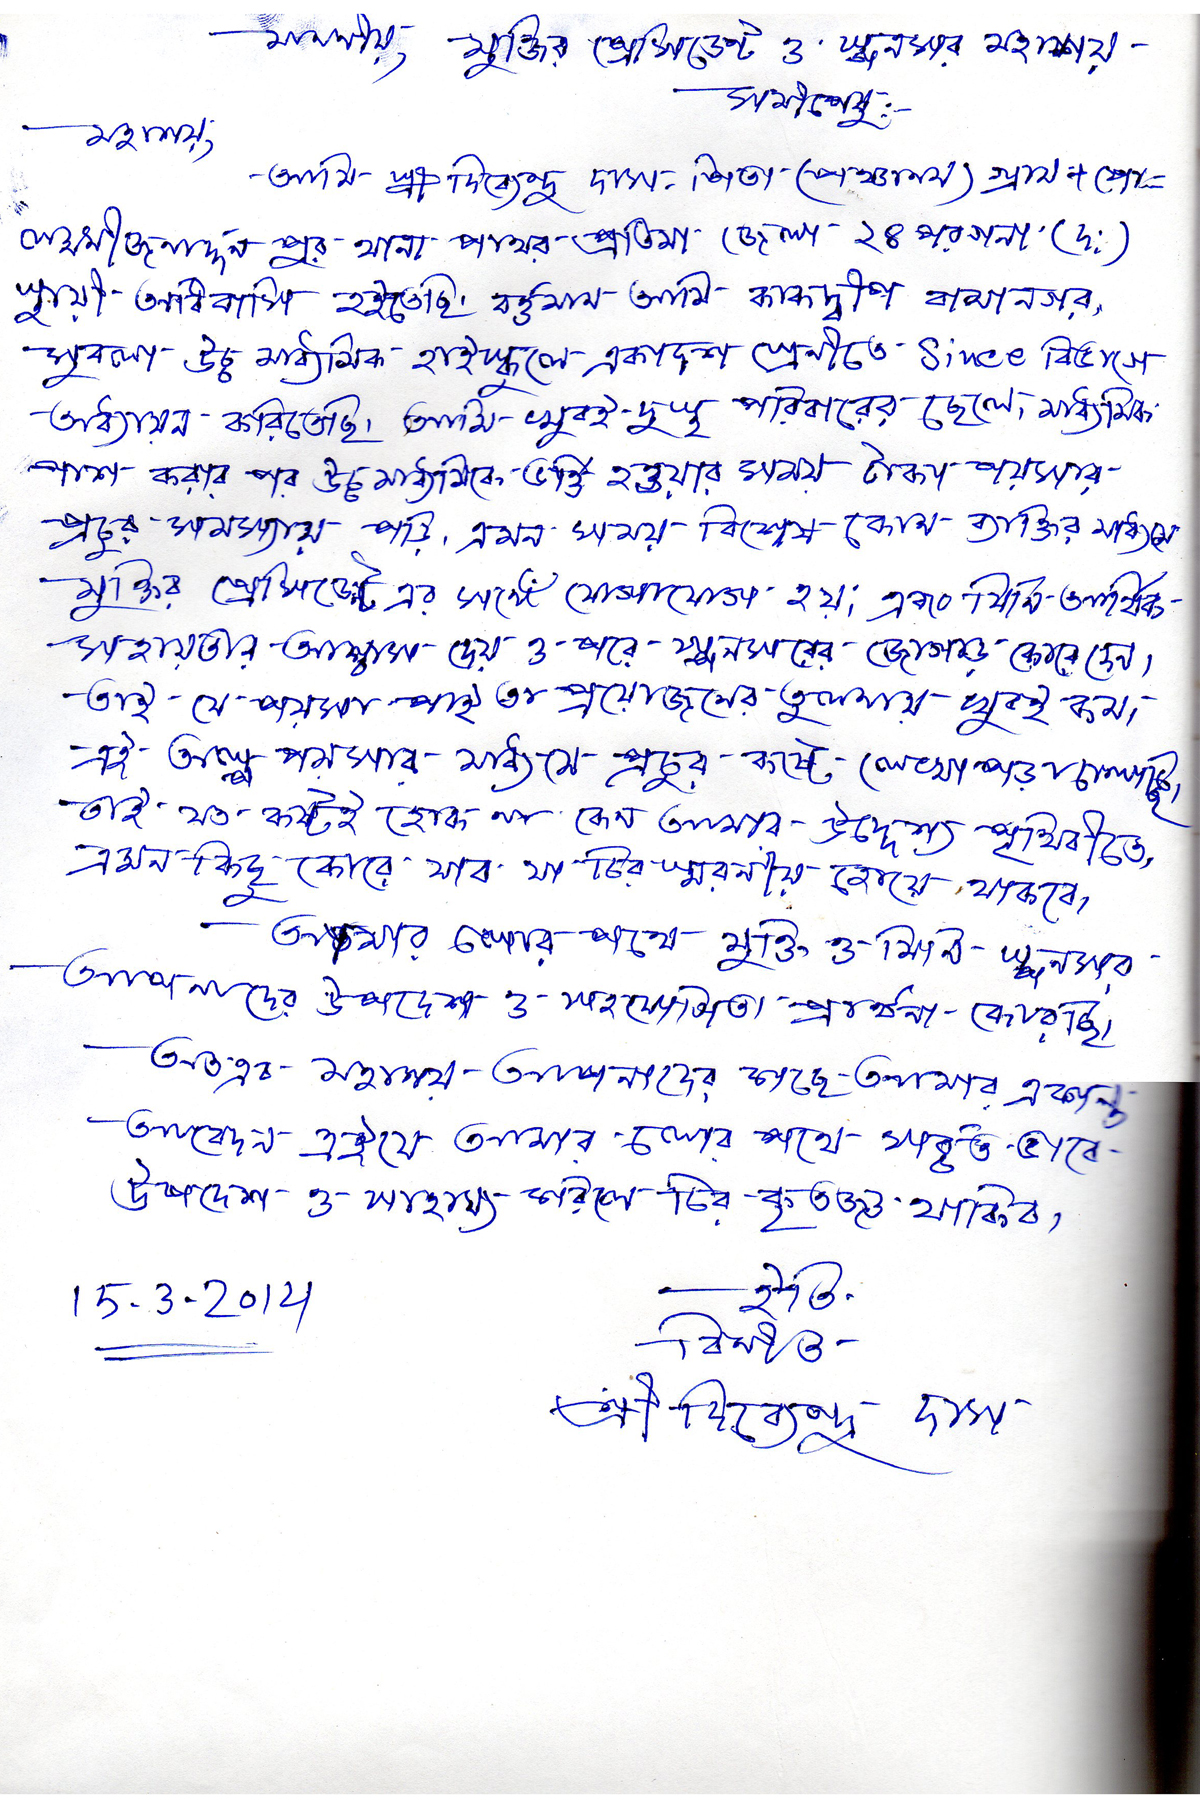 মাননীয়, মুক্তির প্রেসিডেন্ট ও স্পনসার মহাশয়
সমীপেষু:-
মহাশয়,
আমি শ্রী দিব্যেন্দু দাস. পিতা (পঞ্চানন) গ্রাম + পো:
লক্ষ্মীজনার্দ্দন পুর থানা পাথর প্রতিমা জেলা ২৪ পরগনা (দ:)
স্থায়ী অধিবাসি হইতেছি। বর্ত্তমান আমি কাকদ্বীপ বামানগর,
সুবলা উচ্চ মাধ্যমিক হাইস্কুলে একাদশ শ্রেনীতে Since বিভাগে
অধ্যায়ন করিতেছি। আমি খুবই দুস্থ পরিবারের ছেলে। মাধ্যমিক
পাশ করার পর উচ্চমাধ্যমিকে ভর্ত্তি হওয়ার সময় টাকা পয়সার
প্রচুর সমস্যায় পরি, এমন সময় বিশেষ কোন ব্যাক্তির মাধ্যমে
মুক্তির প্রেসিডেন্ট এর সঙ্গে যোগাযোগ হয়; এবং যিনি আর্থিক
সাহায়তার আশ্বাস দেয় ও পরে স্পনসারের জোগাড় কোরে দেন,
তাই যে পয়সা পাই তা প্রয়োজনের তুলনায় খুবই কম।
এই অল্প পয়সার মাধ্যমে প্রচুর কষ্টে লেখা পড়া চালাচ্ছি,
তাই যত কষ্টই হোক না কেন আমার উদ্দেশ্য পৃথিবীতে,
এমন কিছু কোরে যাব যা চির স্মরনীয় হোয়ে থাকবে,
আমার চলার পথে মুক্তি ও যিনি স্পনসার
আপনাদের উপদেশ ও সহযোগিতা প্রার্থনা কোরছি,
অতএব মহাশয় আপনাদের কাছে আমার একান্ত
আবেদন এইযে আমার চলার পথে ভাবে
উপদেশ ও সাহায্য করিলে চির কৃতজ্ঞ থাকিব,
15.3.2014
ইতি.
বিনীত
শ্রী দিব্যেন্দু দাস